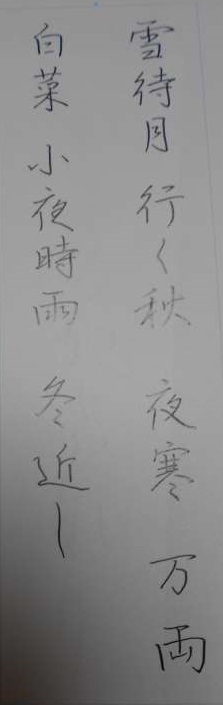 雪待月 行く秋 夜寒 万両
白菜 小夜時雨 冬近し